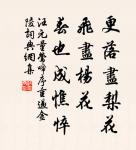 更落盡梨花
飛盡楊花
春也成憔悴
汪元量鶯啼序重過金
陵詞典網集